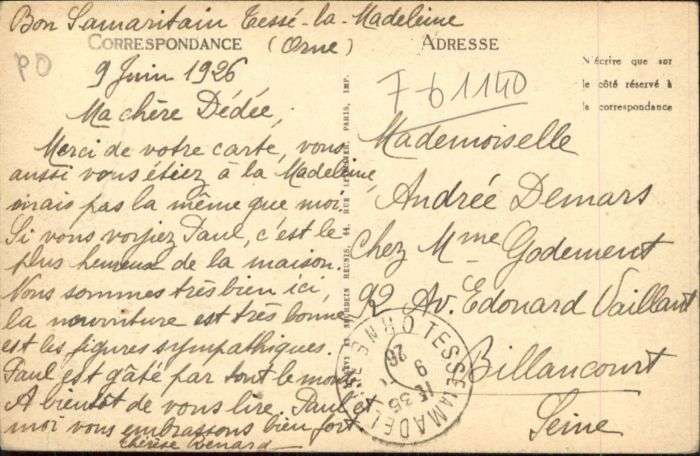 Bon Samaritain Tessé-la-Madeleine
(Orne)
CORRESPONDANCE
PO
9 Juin 1926
Ma chère Dédée,
Merci de votre carte, vous
aussi vous étiez à la Madeleine,
mais pas la même que moi.
Si vous voyiez Paul, c'est le
plus heureux de la maison.
Nous sommes très bien ici,
la nourriture est très bonne
est les figures sympathiques.
Paul est gâté par tout le monde
A bientôt de vous lire, Paul et
moi vous embrassons bien fort.
Thérèse Renard
PARIS, IMP.
ADRESSE
N'écrire que sur
le côté réservé à
la correspondance
7-61140
Mademoiselle
Andrée Demars
Chez Mme Godement
92 Av. Edouard Vaillant
Billancourt
Seine
TESSE LA MADEL
ORNE
9
26